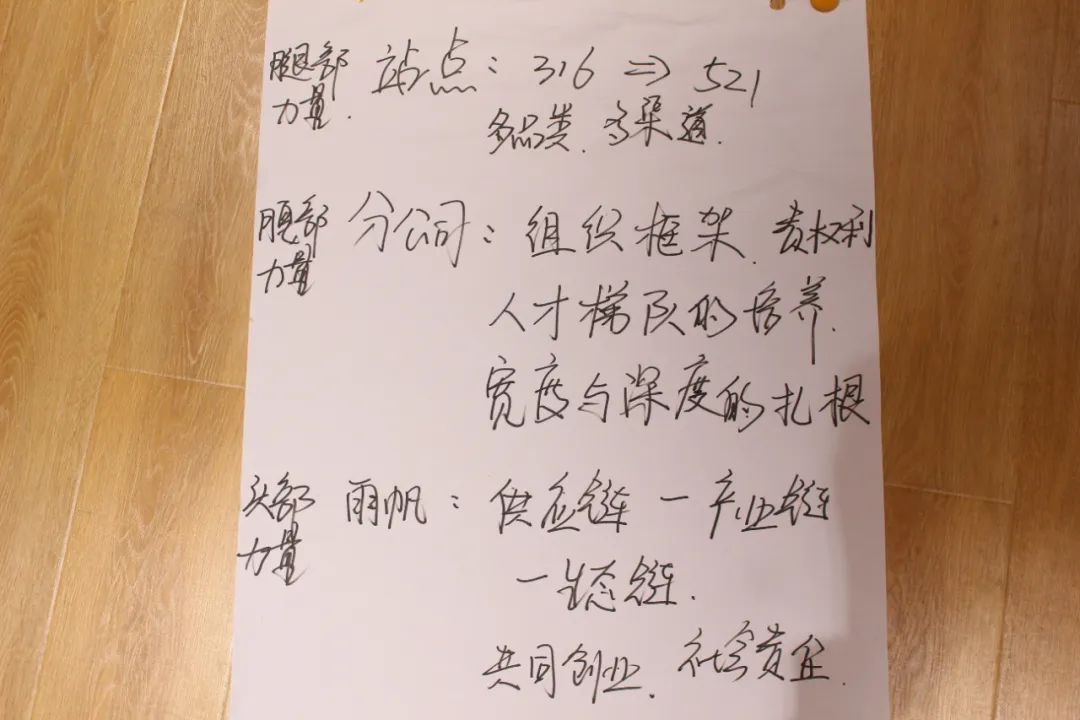 腿部 站点：316 ⇒ 521
力量. 多品类、多渠道.
腹部 分公司：组织框架、责权利
力量 人才梯队的培养.
宽度与深度的扎根
头部 雨帆：供应链一产业链
力量 一生态链.
共同创业、社会责企.